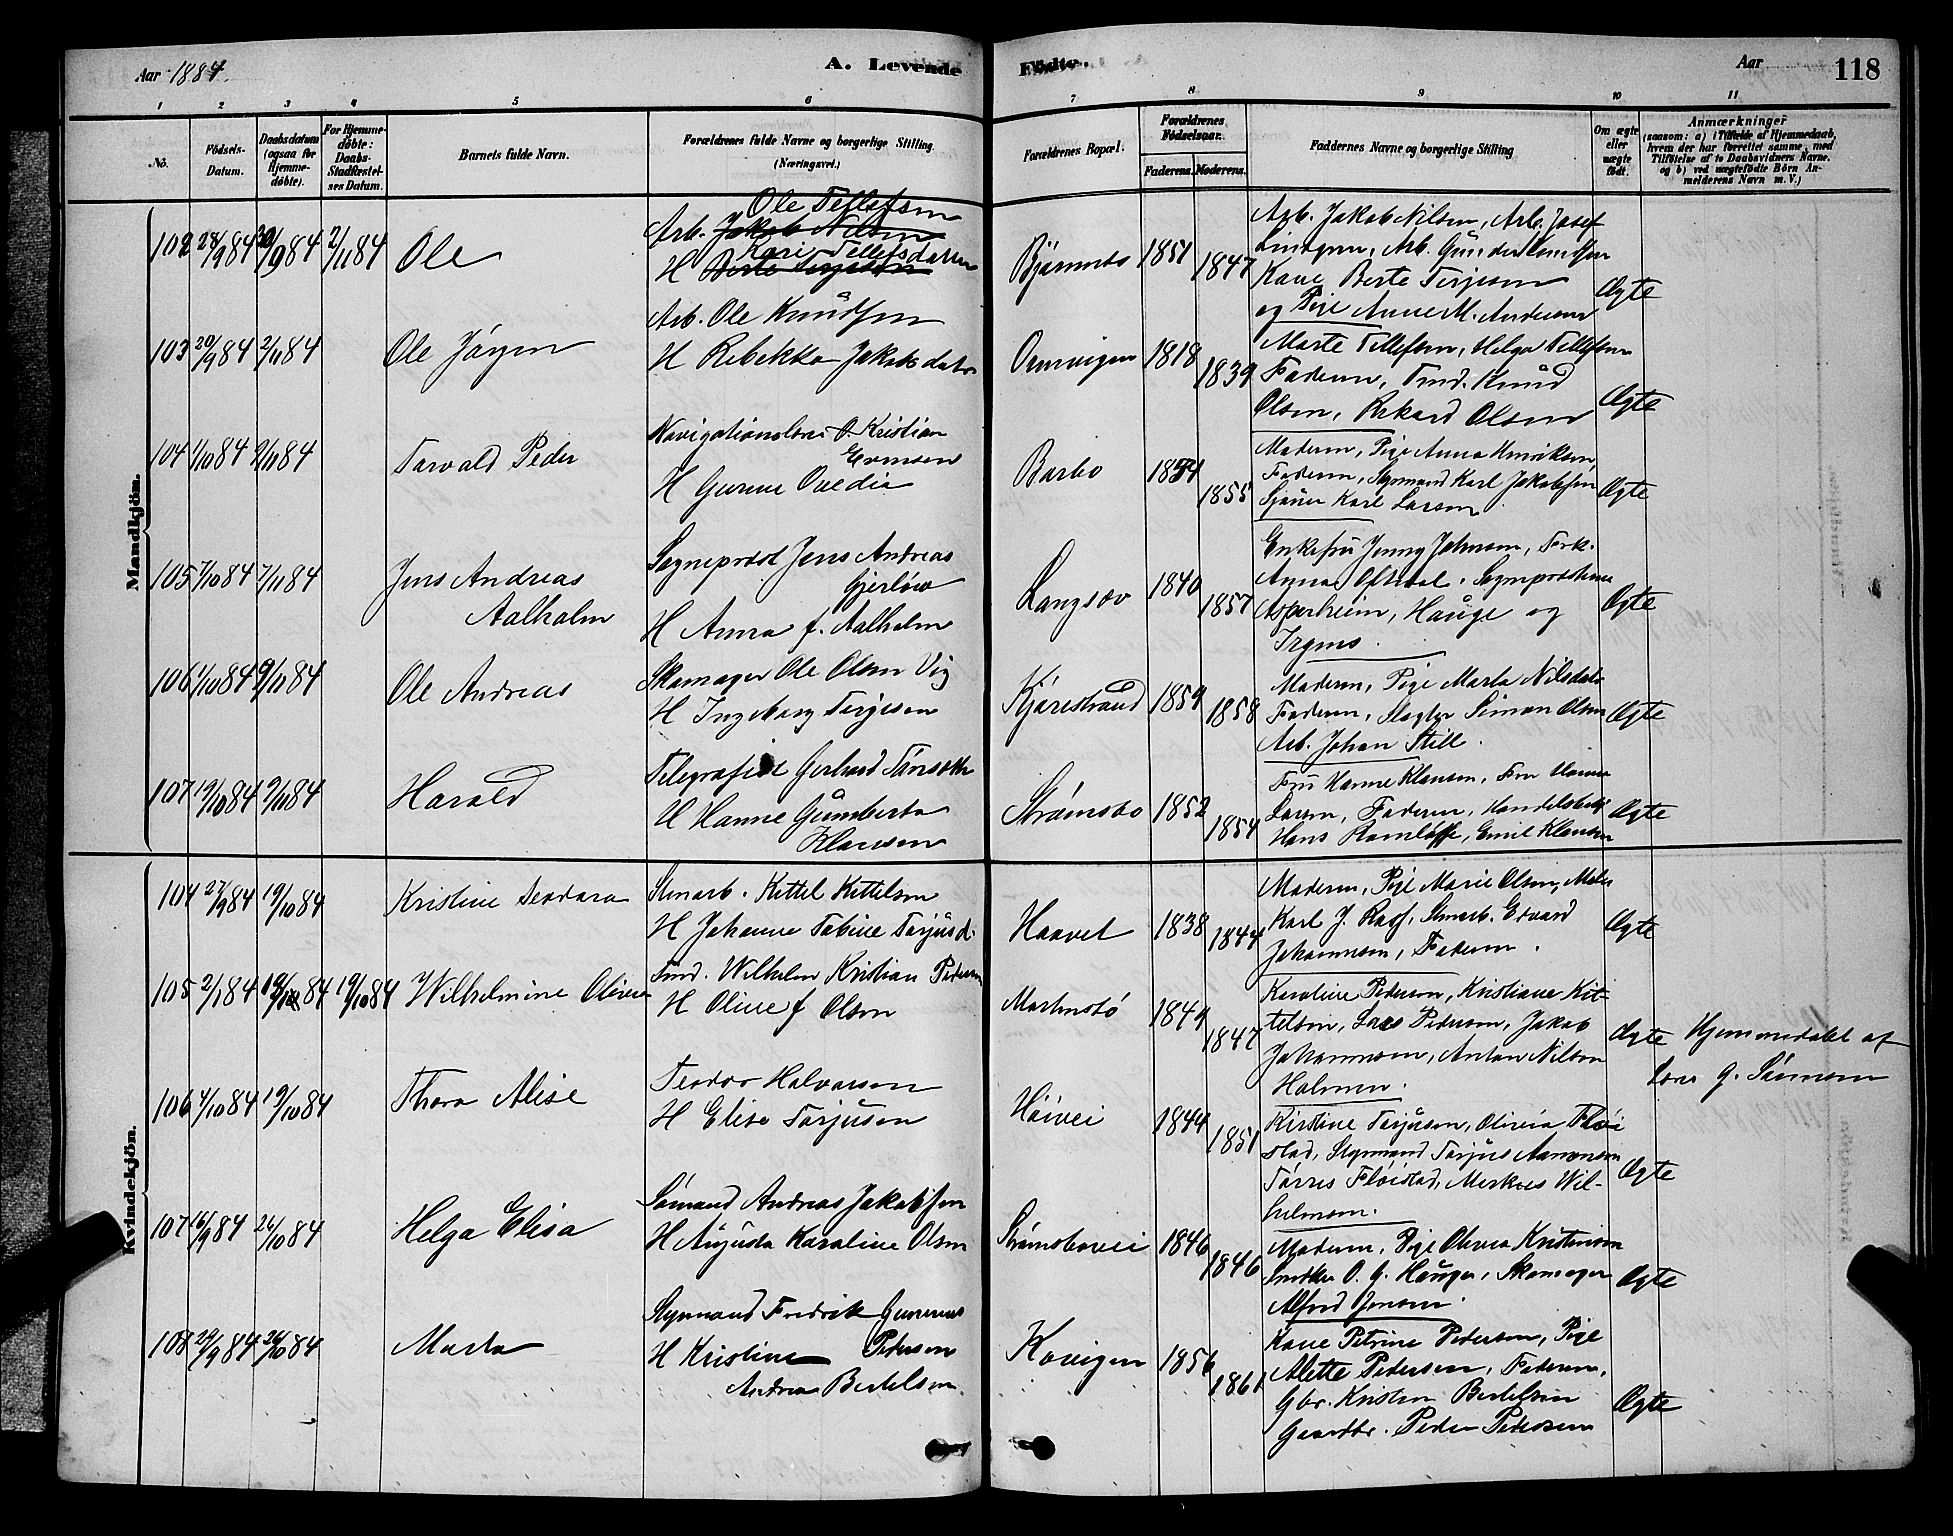 Aar 1884.
A. Levende Fødte.
Aar 118
1 2 3 4 5 6 7 8 9 10 11
No.
Födsels-Datum.
Daabsdatum (ogsaa for Hjemme-döbte).
For Hjemme-döbte: Daabs-Stadfæstel-ses Datum.
Barnets fulde Navn.
Forældrenes fulde Navne og borgerlige Stilling (Næringsvei.)
Forældrenes Bopæl.
Forældrenes Födselsaar.
Faderens. Moderens.
Faddernes Navne og borgerlige Stilling
Om ægte eller uægte födt.
Anmærkninger
(saasom: a) i Tilfælde af Hjemmedaab, hvem der har forrettet samme, med Tilföielse af to Daabsvidners Navne, og b) ved uægtefödte Börn An-melderens Navn m. V.)
Mandkjön.
102 28/9 84 30/9 84 2/11 84 Ole
Ole Tellefsen
Arb. Jakob Nilsen
Kari Tellefsdatter
H Berte Terjesen
1851 1847
Arb. Jakob Nilsen, Arb. Josef
Lindgren, Arb. Gunder Knudsen
Kone Berte Terjesen
og Pige Anne M. Andersen
Ægte
103 20/9 84 2/11 84 Ole Jörgen
Arb. Ole Knudsen
H Rebekka Jakobsdatr
1818 1839
Marte Tellefsen, Helga Tellefsen
Faderen, Tmd. Knud
Olsen, Rikard Olsen
Ægte
104 1/10 84 9/11 84 Torvald Peder
Kristian
Evensen
H Gurine Ovedia
Barbo 1854 1855
Moderen, Pige Anna Henriksen
Faderen, Styrmand Karl Jakobsen
Sjauer Karl Larsen
Ægte
105 7/10 84 7/11 84 Jens Andreas
Aalholm
Sogneprest Jens Andreas
Gjerløw
H Anna f. Aalholm
Langsæv 1840 1857
Enkefru Jenny Johnsen, Frk.
Anna Oftedal, Sogneprestene
Asperheim, Hauge og
Irgens.
Ægte
106 1/10 84 9/11 84 Ole Andreas
Skomager Ole Olsen Vig
H Ingeborg Terjesen
Kjørestrand 1859 1858
Moderen, Pige Marta Nilsdatr
Faderen, Slagter Simon Olsen
Arb. Johan Still.
Ægte
107 19/10 84 9/11 84 Harald
Telegrafist Gerhard
H Hanne Gumberta
Klausen
Strømsbo 1852 1854
Fru Hanne Klausen, Fru Hanne
Larsen, Faderen, Handelsbetj
Hans Ramløff, Emil Klausen
Ægte
Kvindekjön.
104 27/9 84 19/10 84 Kristine Teodora
Stmarb. Kittel Kittelsen
H Johanne Tobine Terjusd.
Haavet 1838 1844
Moderen, Pige Marie Olsen, Maler
Karl J. , Stmarb. Edvard
Johannesen, Faderen.
Ægte
105 2/ 84 19/10 84 19/10 84 Wilhelmine Olivia
Tmd. Wilhelm Kristian Pedersen
H Oline f Olsen
1849 1847
Karoline Pedersen, Kristiane Kit-
telsen, Lars Pedersen, Jakob
Johannesen, Anton Nilsen
Holmen.
Ægte Hjemmedøbt af
G.
106 4/10 84 19/10 84 Thora Alise
Teodor Halvorsen
H Elise Terjusen
Høivei 1844 1851
Kirstine Terjusen, Olivia Fløi
stad, Styrmand Terjus Aanonsen
Tørres Fløistad, Markus Wil-
helmsen.
Ægte
107 16/9 84 26/10 84 Helga Elisa
Sömand Andreas Jakobsen
H Augusta Karoline Olsen
Strømsbovei 1846 1846
Moderen, Pige Olivia Kristensen
Snedker O. G. Hauger, Skomager
Alfred Jensen.
Ægte
108 29/9 84 26/10 84 Marta
Styrmand Fredrik Gunerius
Pedersen
H Kristine
Andrea Bertelsen
Kovigen 1856 1861
Kone Petrine Pedersen, Pige
Alette Pedersen, Faderen,
Gbr. Kristen Bertelsen
Gaardbr. Peder Pedersen
Ægte